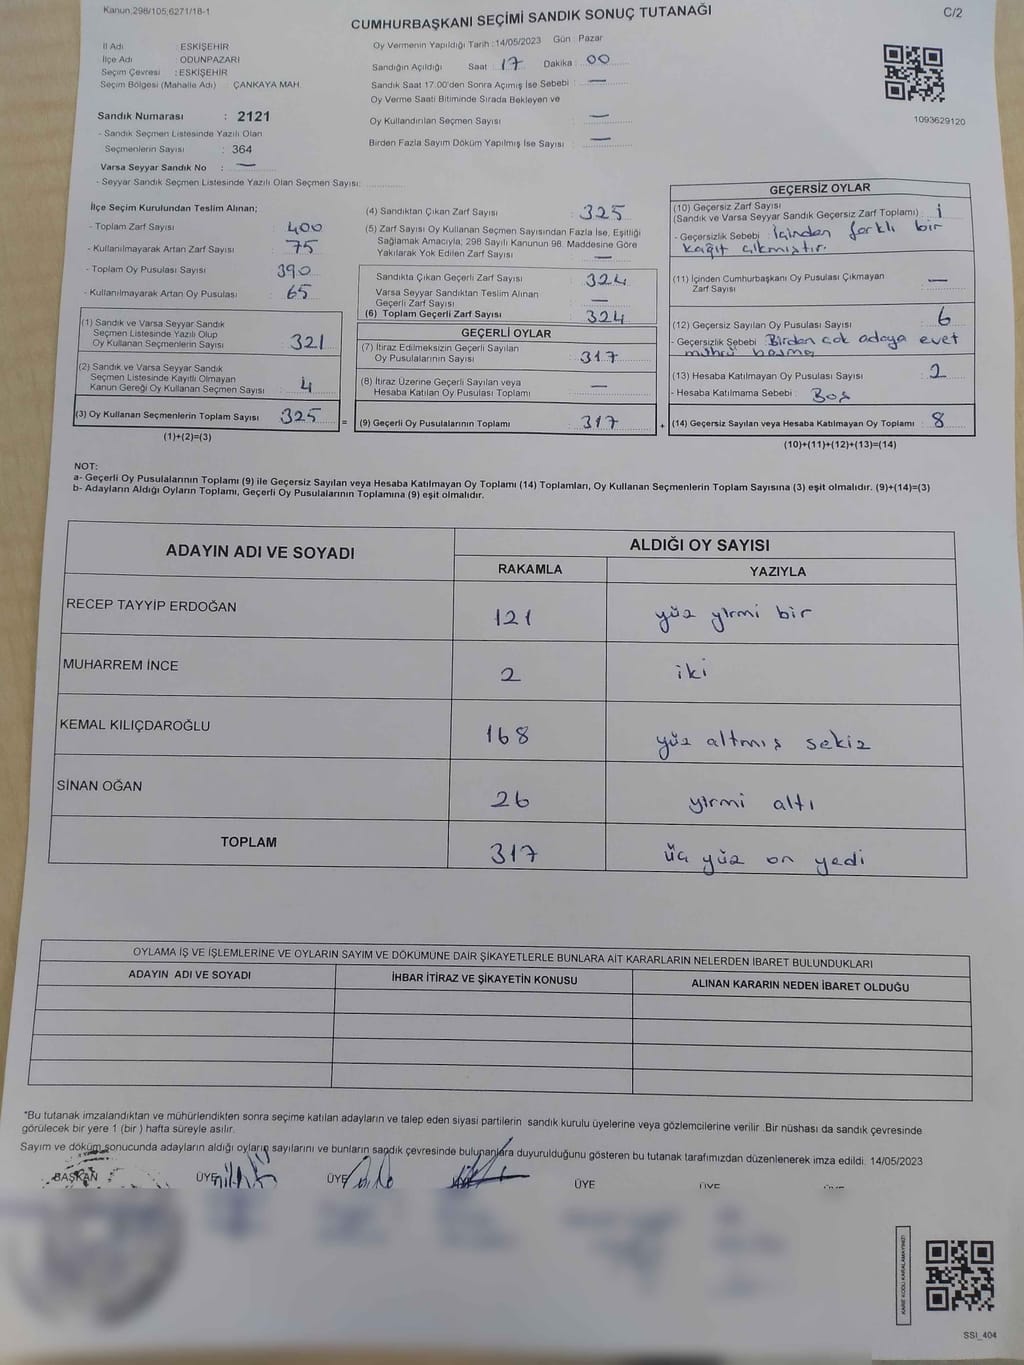 Kanun:298/105,6271/18-1
CUMHURBAŞKANI SEÇİMİ SANDIK SONUÇ TUTANAĞI
C/2
İl Adı : ESKİŞEHİR
İlçe Adı : ODUNPAZARI
Seçim Çevresi : ESKİŞEHİR
Seçim Bölgesi (Mahalle Adı) ÇANKAYA MAH.
Sandık Numarası : 2121
- Sandık Seçmen Listesinde Yazılı Olan
Seçmenlerin Sayısı : 364
Varsa Seyyar Sandık No : —
- Seyyar Sandık Seçmen Listesinde Yazılı Olan Seçmen Sayısı:
Oy Vermenin Yapıldığı Tarih :14/05/2023 Gün : Pazar
Sandığın Açıldığı Saat : 17 Dakika : 00
Sandık Saat 17.00'den Sonra Açımış İse Sebebi : —
Oy Verme Saati Bitiminde Sırada Bekleyen ve
Oy Kullandırılan Seçmen Sayısı : —
Birden Fazla Sayım Döküm Yapılmış İse Sayısı : —
1093629120
İlçe Seçim Kurulundan Teslim Alınan;
- Toplam Zarf Sayısı : 400
- Kullanılmayarak Artan Zarf Sayısı : 75
- Toplam Oy Pusulası Sayısı : 390
- Kullanılmayarak Artan Oy Pusulası : 65
(1) Sandık ve Varsa Seyyar Sandık
Seçmen Listesinde Yazılı Olup
Oy Kullanan Seçmenlerin Sayısı : 321
(2) Sandık ve Varsa Seyyar Sandık
Seçmen Listesinde Kayıtlı Olmayan
Kanun Gereği Oy Kullanan Seçmen Sayısı : 4
(3) Oy Kullanan Seçmenlerin Toplam Sayısı : 325
(1)+(2)=(3)
=
(4) Sandıktan Çıkan Zarf Sayısı : 325
(5) Zarf Sayısı Oy Kullanan Seçmen Sayısından Fazla İse, Eşitliği
Sağlamak Amacıyla, 298 Sayılı Kanunun 98. Maddesine Göre
Yakılarak Yok Edilen Zarf Sayısı : —
Sandıkta Çıkan Geçerli Zarf Sayısı : 324
Varsa Seyyar Sandıktan Teslim Alınan
Geçerli Zarf Sayısı : —
(6) Toplam Geçerli Zarf Sayısı : 324
GEÇERLİ OYLAR
(7) İtiraz Edilmeksizin Geçerli Sayılan
Oy Pusulalarının Sayısı : 317
(8) İtiraz Üzerine Geçerli Sayılan veya
Hesaba Katılan Oy Pusulası Toplamı : —
(9) Geçerli Oy Pusulalarının Toplamı : 317
+
GEÇERSİZ OYLAR
(10) Geçersiz Zarf Sayısı
(Sandık ve Varsa Seyyar Sandık Geçersiz Zarf Toplamı) : 1
- Geçersizlik Sebebi : İçinden farklı bir
kağıt çıkmıştır.
(11) İçinden Cumhurbaşkanı Oy Pusulası Çıkmayan
Zarf Sayısı : —
(12) Geçersiz Sayılan Oy Pusulası Sayısı : 6
- Geçersizlik Sebebi : Birden çok adaya evet
mührü basma
(13) Hesaba Katılmayan Oy Pusulası Sayısı : 2
- Hesaba Katılmama Sebebi : Boş
(14) Geçersiz Sayılan veya Hesaba Katılmayan Oy Toplamı : 8
(10)+(11)+(12)+(13)=(14)
NOT:
a- Geçerli Oy Pusulalarının Toplamı (9) ile Geçersiz Sayılan veya Hesaba Katılmayan Oy Toplamı (14) Toplamları, Oy Kullanan Seçmenlerin Toplam Sayısına (3) eşit olmalıdır. (9)+(14)=(3)
b- Adayların Aldığı Oyların Toplamı, Geçerli Oy Pusulalarının Toplamına (9) eşit olmalıdır.
ADAYIN ADI VE SOYADI ALDIĞI OY SAYISI
RAKAMLA YAZIYLA
RECEP TAYYİP ERDOĞAN 121 yüz yirmi bir
MUHARREM İNCE 2 iki
KEMAL KILIÇDAROĞLU 168 yüz altmış sekiz
SİNAN OĞAN 26 yirmi altı
TOPLAM 317 üç yüz on yedi
OYLAMA İŞ VE İŞLEMLERİNE VE OYLARIN SAYIM VE DÖKÜMÜNE DAİR ŞİKAYETLERLE BUNLARA AİT KARARLARIN NELERDEN İBARET BULUNDUKLARI
ADAYIN ADI VE SOYADI İHBAR İTİRAZ VE ŞİKAYETİN KONUSU ALINAN KARARIN NEDEN İBARET OLDUĞU
*Bu tutanak imzalandıktan ve mühürlendikten sonra seçime katılan adayların ve talep eden siyasi partilerin sandık kurulu üyelerine veya gözlemcilerine verilir .Bir nüshası da sandık çevresinde
görülecek bir yere 1 (bir ) hafta süreyle asılır.
Sayım ve döküm sonucunda adayların aldığı oyların sayılarını ve bunların sandık çevresinde bulunanlara duyurulduğunu gösteren bu tutanak tarafımızdan düzenlenerek imza edildi. 14/05/2023
BAŞKAN ÜYE ÜYE ÜYE ÜYE
KARE KODU KARALAMAYINIZ!
SSI_404